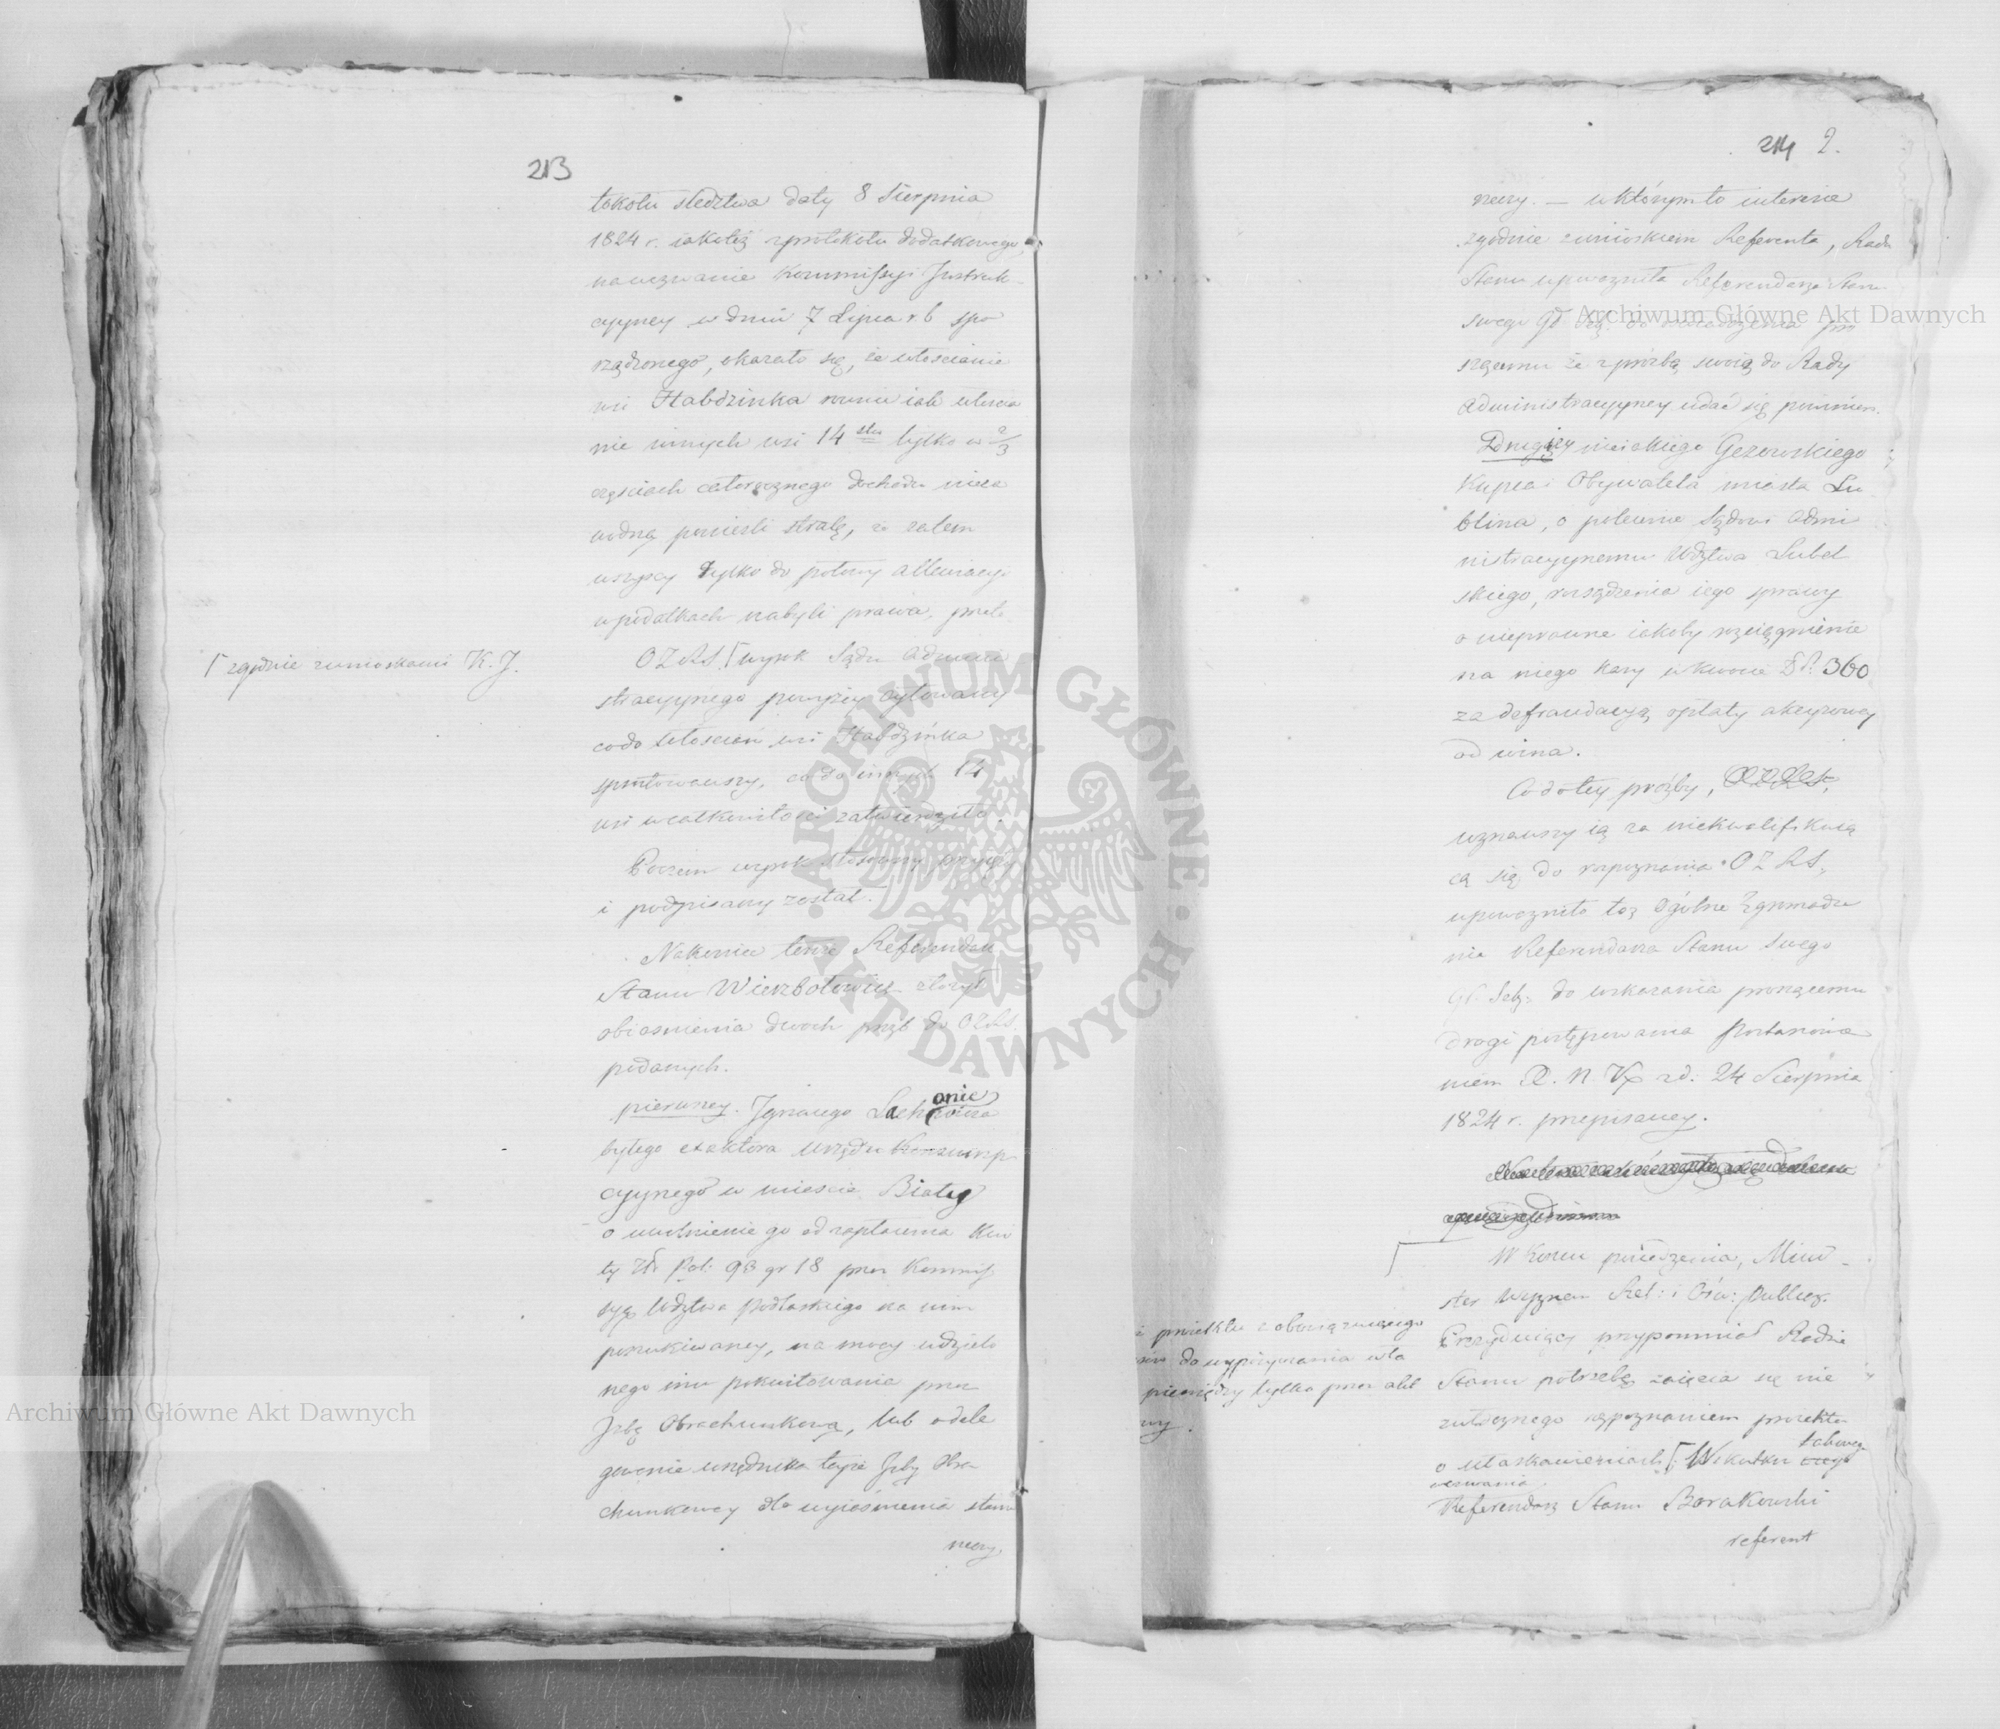 213
tokołu śledztwa daty 8 Sierpnia
1824 r. iakoteż z protokołu dodatkowego,
na wezwanie Kommissyi Instruk-
cyyney w dniu 7 Lipca r. b. spo
rządzonego, okazało się, że włościanie
wsi Habdzinka równie iak włościa
nie innych wsi 14stu tylko w 2/3
częściach całorocznego dochodu
ponieśli stratę, że zatem
wszyscy tylko do połowy allewiacyi
w podatkach nabyli prawa, przeto
OZRS. ⌈ wyrok Sądu Admini
⌈ zgodnie z wnioskami K. J.
stracyynego powyżey cytowany
co do włościan wsi Habdzinka
sprostowawszy, co do innych 14
wsi w całkowitości zatwierdziło.
Poczem wyrok stosowny przyięty
i podpisany został.
Nakoniec tenże Referendarz
Stanu Wierzbołowicz złożył
obiaśnienia dwóch próśb do OZRS.
podanych.
pierwszey. Ignacego
onie
byłego exaktora Urzędu Konsump
cyynego w mieście Białey
o uwolnienie go od zapłacenia Kwo
ty Złt Pol: 93 gr 18 przez Kommis
syę Wdztwa Podlaskiego na nim
poszukiwaney, na mocy udzielo
nego mu pokwitowania przez
Izbę Obrachunkową, lub o dele
gowanie urzędnika teyże Izby Obra
chunkowey dla wyiaśnienia stanu
rzeczy.
214 2.
rzeczy. — w którym to interesie
zgodnie z wnioskiem Referenta, Rada
Stanu upoważniła Referendarza Stanu
swego do
szącemu że z prośbą swoią do Rady
Administracyyney udać się powinien.
Drugiey nieiakiego Gerowskiego
Kupca i Obywatela miasta Lu
blina, o polecenie Sądowi Admi
nistracyynemu Wdztwa Lubel
skiego, rozsądzenia iego sprawy
o nieprawne iakoby rozciągnienie
na niego kary w kwocie 360
za defraudacyą opłaty akcyzowey
od wina.
Co do tey prośby, OZRS,
uznawszy ią za niekwalifikuią
cą się do rozpoznania OZRS,
upoważniło toż Ogólne Zgromadze
nie Referendarza Stanu swego
do wskazania proszącemu
drogi postępowania Postanowie
niem z d. 24 Sierpnia
1824 r. przepisaney.
⌈ W końcu posiedzenia, Mini-
ster Wyznań Rel: i Ośw: Publicz.
Prezyduiący przypomniał Radzie
Stanu potrzebę zaięcia się nie
zwłocznego rozpoznaniem proiektu
o ułaskawieniach ⌈ W skutku takowego
wezwania
Referendarz Stanu Borakowski
referent
i proiektu zobowiązuiącego
do wypożyczania
pieniędzy tylko przez